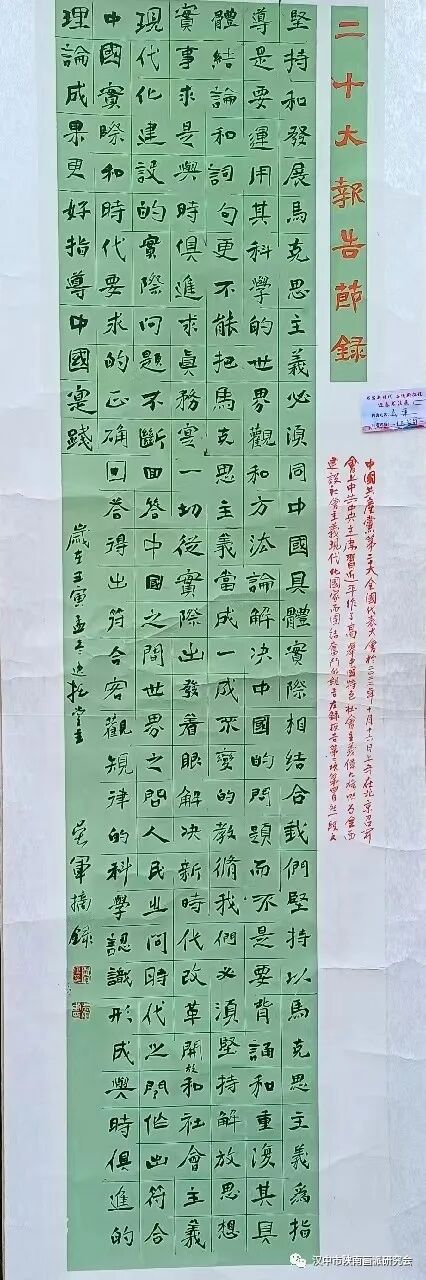 二十大報告節錄
中國共產黨第二十大全國代表大會於二〇二二年十月十六日上午在北京召開
會上中共中央主席習近平作了高舉中國特色社會主義偉大旗幟為全面
建設社會主義現代化國家而團結奮鬥的報告右錄報告第二
堅持和發展馬克思主義必須同中國具體實際相結合我們堅持以馬克思主義爲指
導是要運用其科學的世界觀和方法論解決中國的問題而不是要背誦和重復其具
體結論和詞句更不能把馬克思主義當成一成不變的教條我們必須堅持解放思想
實事求是與時俱進求真務實一切從實際出發着眼解决新時代改革開放和社會主義
現代化建設的實際問題不斷回答中國之問世界之問人民之問時代之問作出符合
中國實際和時代要求的正确回答得出符合客觀規律的科學認識形成與時俱進的
理論成果更好指導中國實踐
歲在壬寅孟冬 軍摘録
汉中市陕南画派研究会